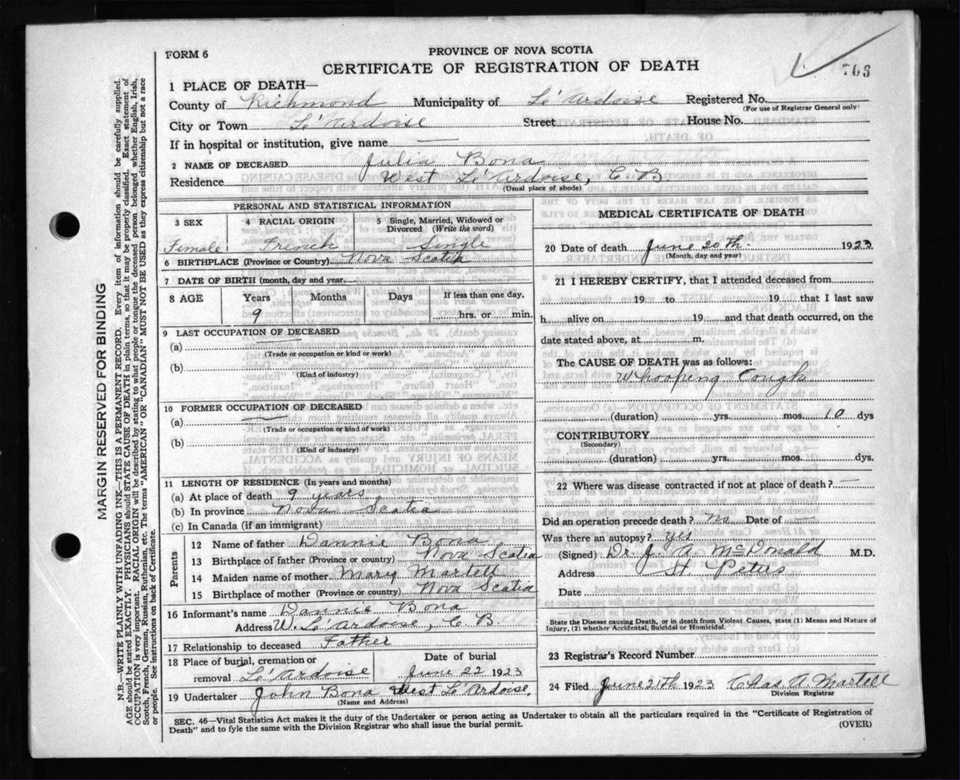 FORM 6
PROVINCE OF NOVA SCOTIA
CERTIFICATE OF REGISTRATION OF DEATH
706
1 PLACE OF DEATH—
County of Richmond Municipality of L'Ardoise Registered No.
(For use of Registrar General only)
City or Town L'Ardoise Street House No.
If in hospital or institution, give name —
2 NAME OF DECEASED Julia Bona
Residence West L'Ardoise, C. B.
(Usual place of abode)
PERSONAL AND STATISTICAL INFORMATION
3 SEX 4 RACIAL ORIGIN 5 Single, Married, Widowed or Divorced (Write the word)
Female French Single
6 BIRTHPLACE (Province or Country) Nova Scotia
7 DATE OF BIRTH (month, day and year)
8 AGE Years Months Days If less than one day,
9 hrs. or min.
9 LAST OCCUPATION OF DECEASED
(a) —
(Trade or occupation or kind or work)
(b)
(Kind of industry)
10 FORMER OCCUPATION OF DECEASED
(a) —
(Trade or occupation or kind of work)
(b)
(Kind of industry)
11 LENGTH OF RESIDENCE (In years and months)
(a) At place of death 9 years
(b) In province Nova Scotia
(c) In Canada (if an immigrant)
Parents
12 Name of father Dannie Bona
13 Birthplace of father (Province or country) Nova Scotia
14 Maiden name of mother Mary Martell
15 Birthplace of mother (Province or country) Nova Scotia
16 Informant's name Dannie Bona
Address W. L'Ardoise, C B
17 Relationship to deceased Father
18 Place of burial, cremation or removal L'Ardoise Date of burial June 22 1923
19 Undertaker John Bona West L'Ardoise,
(Name and Address)
MEDICAL CERTIFICATE OF DEATH
20 Date of death June 20th 1923
(Month, day and year)
21 I HEREBY CERTIFY, that I attended deceased from
19 to 19 that I last saw
h alive on 19 and that death occurred, on the
date stated above, at m.
The CAUSE OF DEATH was as follows:
Whooping Cough
(duration) yrs. mos. 10 dys
CONTRIBUTORY
(Secondary)
(duration) yrs. mos. dys.
22 Where was disease contracted if not at place of death? —
Did an operation precede death? No Date of —
Was there an autopsy? Yes
(Signed) Dr. J. A. McDonald M.D.
Address St. Peters
Date
State the Disease causing Death, or in death from Violent Causes, state (1) Means and Nature of
Injury, (2) whether Accidental, Suicidal or Homicidal.
23 Registrar's Record Number
24 Filed June 21th 1923 Chas A. Martell
Division Registrar
SEC. 46—Vital Statistics Act makes it the duty of the Undertaker or person acting as Undertaker to obtain all the particulars required in the "Certificate of Registration of
Death" and to fyle the same with the Division Registrar who shall issue the burial permit.
(OVER)
MARGIN RESERVED FOR BINDING
N.B.—WRITE PLAINLY WITH UNFADING INK—THIS IS A PERMANENT RECORD. Every item of information should be carefully supplied.
AGE should be stated EXACTLY. PHYSICIANS should STATE CAUSE OF DEATH in plain terms, so that it may be properly classified. Exact statement of
OCCUPATION is very important. RACIAL ORIGIN will be described by stating to what people or tongue the deceased person belonged whether English, Irish,
Scotch, French, German, Russian, Ruthenian, etc. The terms "AMERICAN" OR "CANADIAN" MUST NOT BE USED as they express citizenship but not a race
or people. See instructions on back of Certificate.